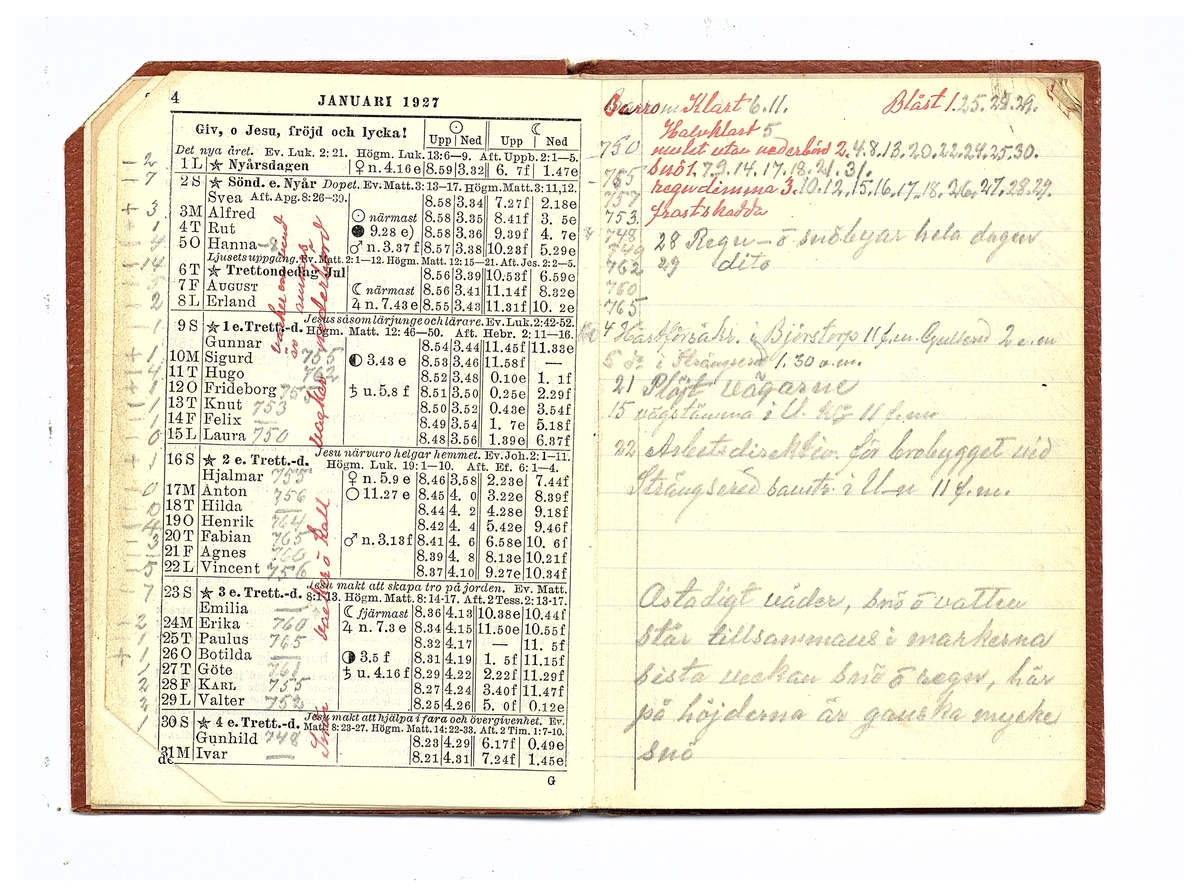 4 JANUARI 1927
Giv, o Jesu, fröjd och lycka! Upp Ned Upp Ned
Det nya året. Ev. Luk. 2: 21. Högm. Luk. 13:6—9. Aft. Uppb. 2:1—5.
1 L ★ Nyårsdagen ♀ n. 4.16 e 8.59 3.32 6. 7f 1.47e
2 S ★ Sönd. e. Nyår Dopet. Ev. Matt. 3: 13—17. Högm. Matt. 3: 11, 12.
Svea Aft. Apg. 8: 26—39. 8.58 3.34 7.27f 2.18e
3M Alfred ☉ närmast 8.58 3.35 8.41f 3. 5e
4T Rut ● 9.28 e) 8.58 3.36 9.39f 4. 7e
5O Hanna ♂ n. 3.37 f 8.57 3.38 10.23f 5.29e
Ljusets uppgång. Ev. Matt. 2: 1—12. Högm. Matt. 12: 15—21. Aft. Jes. 2: 2—5.
6T ★ Trettondedag Jul 8.56 3.39 10.53f 6.59e
7F AUGUST ☾ närmast 8.56 3.41 11.14f 8.32e
8L Erland ♃ n. 7.43 e 8.55 3.43 11.31f 10. 2e
9 S ★ 1 e. Trett.-d. Jesus såsom lärjunge och lärare. Ev. Luk. 2: 42-52.
Högm. Matt. 12: 46—50. Aft. Hebr. 2: 11—16.
Gunnar 8.54 3.44 11.45f 11.33e
10M Sigurd 755 ◐ 3.43 e 8.53 3.46 11.58f —
11T Hugo 762 8.52 3.48 0.10e 1. 1f
12O Frideborg 755 ♄ u. 5.8 f 8.51 3.50 0.25e 2.29f
13T Knut 753 8.50 3.52 0.43e 3.54f
14F Felix 8.49 3.54 1. 7e 5.18f
15L Laura 750 8.48 3.56 1.39e 6.37f
16 S ★ 2 e. Trett.-d. Jesu närvaro helgar hemmet. Ev. Joh. 2: 1—11.
Högm. Luk. 19: 1—10. Aft. Ef. 6: 1—4.
Hjalmar 755 ♀ n. 5.9 e 8.46 3.58 2.23e 7.44f
17M Anton 756 ○ 11.27 e 8.45 4. 0 3.22e 8.39f
18T Hilda 8.44 4. 2 4.28e 9.18f
19O Henrik 764 8.42 4. 4 5.42e 9.46f
20T Fabian 765 ♂ n. 3.13 f 8.41 4. 6 6.58e 10. 6f
21F Agnes 760 8.39 4. 8 8.13e 10.21f
22L Vincent 756 8.37 4.10 9.27e 10.34f
23 S ★ 3 e. Trett.-d. Jesu makt att skapa tro på jorden. Ev. Matt.
8: 1-13. Högm. Matt. 8: 14-17. Aft. 2 Tess. 2: 13-17.
Emilia ☾ fjärmast 8.36 4.13 10.38e 10.44f
24M Erika 760 ♃ n. 7.3 e 8.34 4.15 11.50e 10.55f
25T Paulus 765 8.32 4.17 — 11. 5f
26O Botilda ◑ 3.5 f 8.31 4.19 1. 5f 11.15f
27T Göte 761 ♄ u. 4.16 f 8.29 4.22 2.22f 11.29f
28F KARL 755 8.27 4.24 3.40f 11.47f
29L Valter 752 8.25 4.26 5. 0f 0.12e
30 S ★ 4 e. Trett.-d. Jesu makt att hjälpa i fara och övergivenhet. Ev.
Matt. 8: 23-27. Högm. Matt. 14: 22-33. Aft. 2 Tim. 1: 7-10.
Gunhild 748 8.23 4.29 6.17f 0.49e
31M Ivar 8.21 4.31 7.24f 1.45e
G
Barrom Klart 6. 11. Blåst 1. 25. 28. 29.
Halvklart 5
750 mulet utan nederbörd 2. 4. 8. 13. 20. 22. 24. 25. 30.
755 snö 1. 7. 9. 14. 17. 18. 21. 31.
757 regndimma 3. 10. 12. 15. 16. 17. 18. 26. 27. 28. 29.
753 frostskadda
748 28 Regn- ö snöbyar hela dagen
762 29 dito
760
765
4 Hästförsäkr. i Björstorp 11 f.m. Gullered 2 e.m
5 i Strängsered 1.30 e.m.
21 Plöjt vägarne
15 vägstämma i U. 11 f.m.
22 Arbetsdirektiv. för brobygget vid
Strängsered i U-n 11 f.m.
Ostadigt väder, snö ö vatten
står tillsammans i markerna
sista veckan snö ö regn, här
på höjderna är ganska mycke
snö